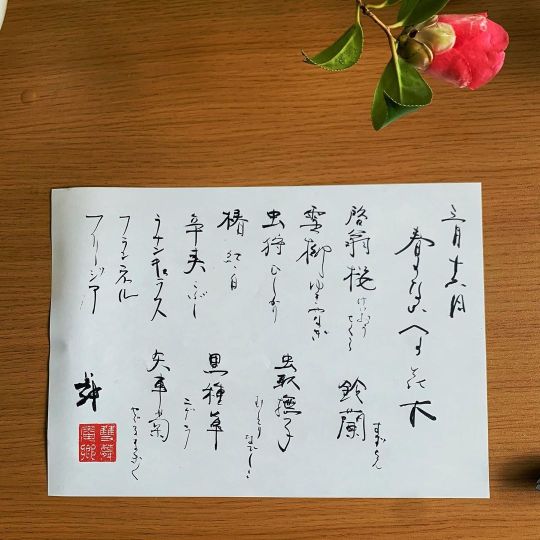 三月十六日
啓翁桜 けいおうざくら
雪柳 ゆきやなぎ
虫狩 むしかり
椿 紅、白
辛夷 こぶし
ラナンキュラス
フランネル
フリージア
鈴蘭 すずらん
虫取撫子 むしとりなでしこ
黒種草 ニゲラ
矢車菊 やぐるまぎく